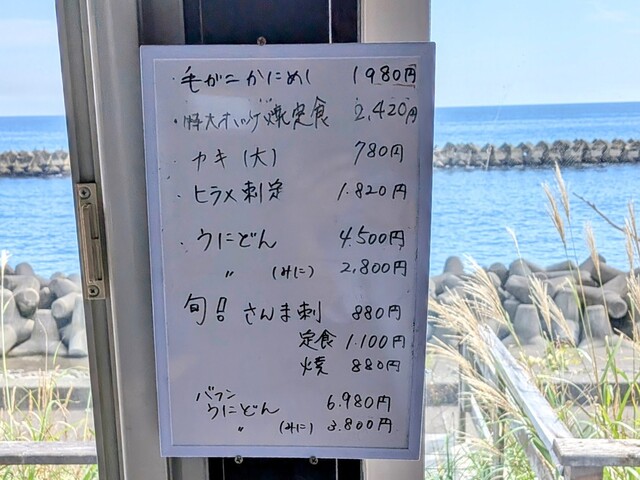 ・毛がにかにめし 1980円
・特大ホッケ焼定食 2,420円
・カキ(大) 780円
・ヒラメ刺定 1.820円
・ウにどん 4.500円
〃 (みに) 2,800円
旬!! さんま刺 880円
定食 1.100円
焼 880円
バフン
ウにどん 6.980円
〃 (みに) 3.800円